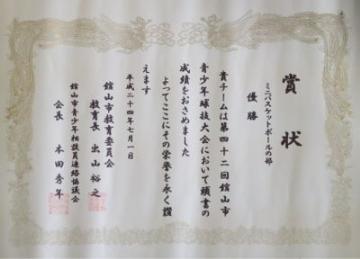 賞状
ミニバスケットボールの部
優勝
貴チームは第四十二回館山市
青少年球技大会において頭書の
成績をおさめました
よってここにその栄誉を永く讃
えます
平成二十四年七月一日
館山市教育委員会
教育長 出山裕之
館山市青少年相談員連絡協議会
会長 本田秀年